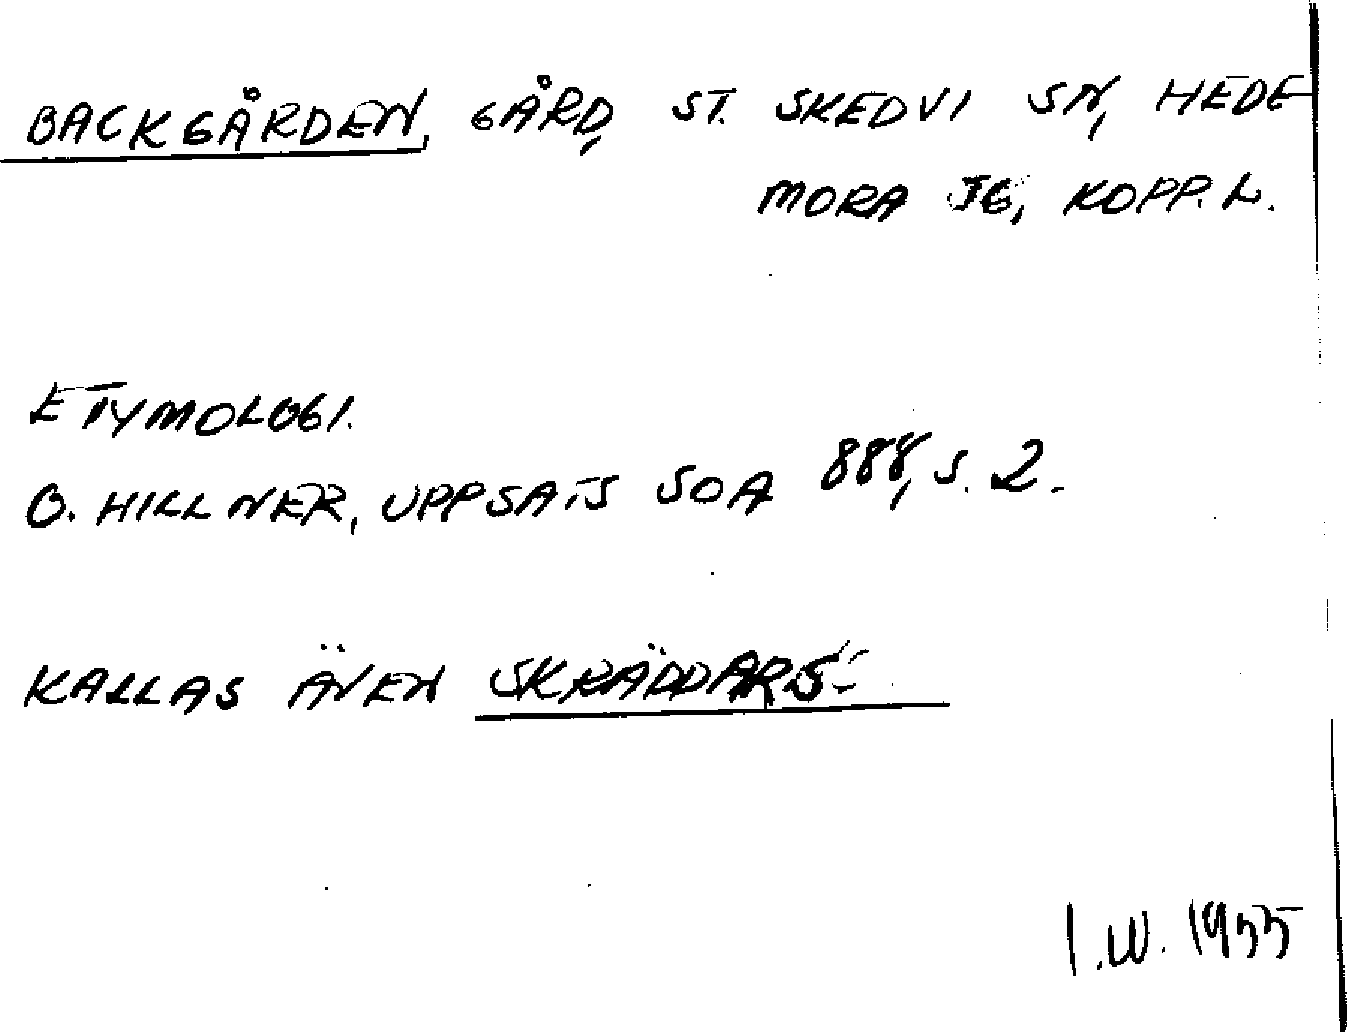 BACKGÅRDEN, GÅRD, ST. SKEDVI SN, HEDE-
MORA JG, KOPP. L.
ETYMOLOGI.
O. HILLNER, UPPSATS SOA 888, S. 2.
KALLAS ÄVEN SKRÄDDARS.
I.W. 1955